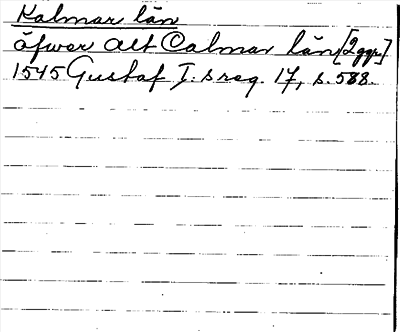 Kalmar län
äfwer alt Calmar län [2 ggr]
1545 Gustaf I:s reg. 17, s. 588.